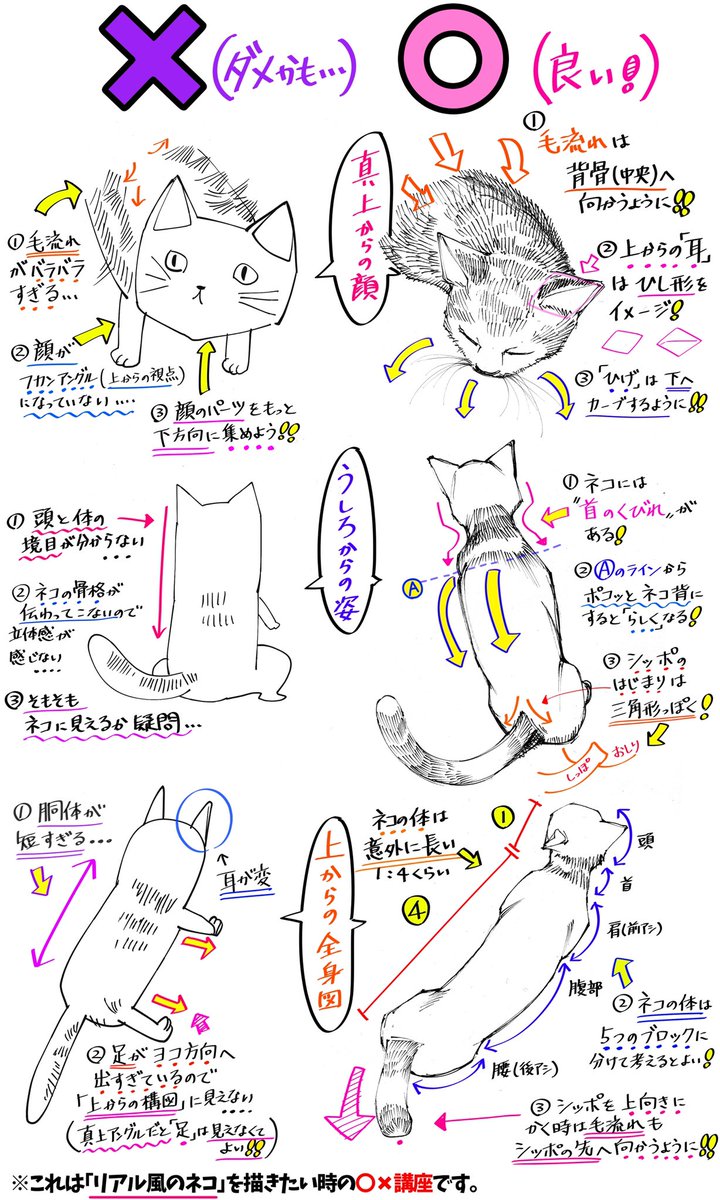 (ダメかも…)
(良い!)
真上からの顔
①毛流れ
がバラバラ
すぎる…
②顔が
フカンアングル(上からの視点)
になっていない…
③顔のパーツをもっと
下方向に集めよう!!
①毛流れは
背骨(中央)へ
向かうように!!
②上からの「耳」
はひし形を
イメージ!
③「ひげ」は下へ
カーブするように!!
うしろからの姿
①頭と体の
境目が分からない…
②ネコの骨格が
伝わってこないので
立体感が
感じない…
③そもそも
ネコに見えるか疑問…
①ネコには
"首のくびれ"が
ある!
Ⓐ
②Ⓐのラインから
ポコッとネコ背に
すると「らしく」なる!
③シッポの
はじまりは
三角形っぽく!
しっぽ
おしり
上からの全身図
①胴体が
短すぎる…
耳が変
②足がヨコ方向へ
出すぎているので
「上からの構図」に見えない…
(真上アングルだと「足」は見えなくて
よい!!)
ネコの体は
意外に長い
1:4くらい
①
④
頭
首
肩(前アシ)
腹部
腰(後アシ)
②ネコの体は
5つのブロックに
分けて考えるとよい!
③シッポを上向きに
かく時は毛流れも
シッポの先へ向かうように!!
※これは「リアル風のネコ」を描きたい時の〇×講座です。